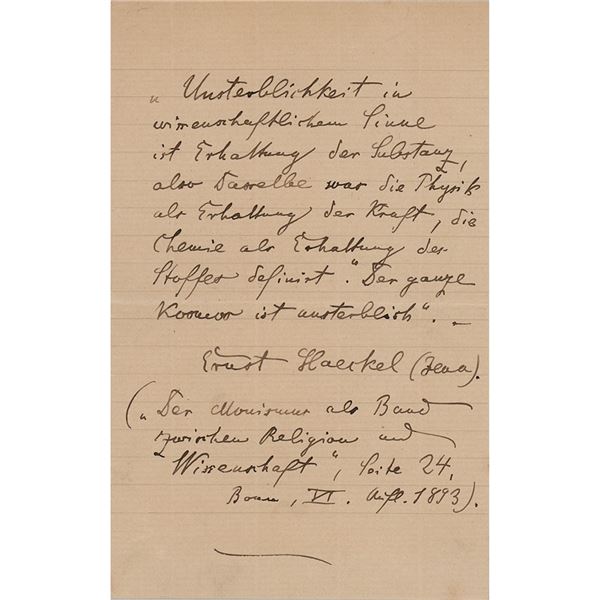 „Unsterblichkeit in
wissenschaftlichem Sinne
ist Erhaltung der Substanz,
also Dasselbe was die Physik
als Erhaltung der Kraft, die
Chemie als Erhaltung des
Stoffes definirt." Der ganze
Kosmos ist unsterblich". –
Ernst Haeckel (Jena).
(„Der Monismus als Band
zwischen Religion und
Wissenschaft", Seite 24,
Bonn, VI. Aufl. 1893).